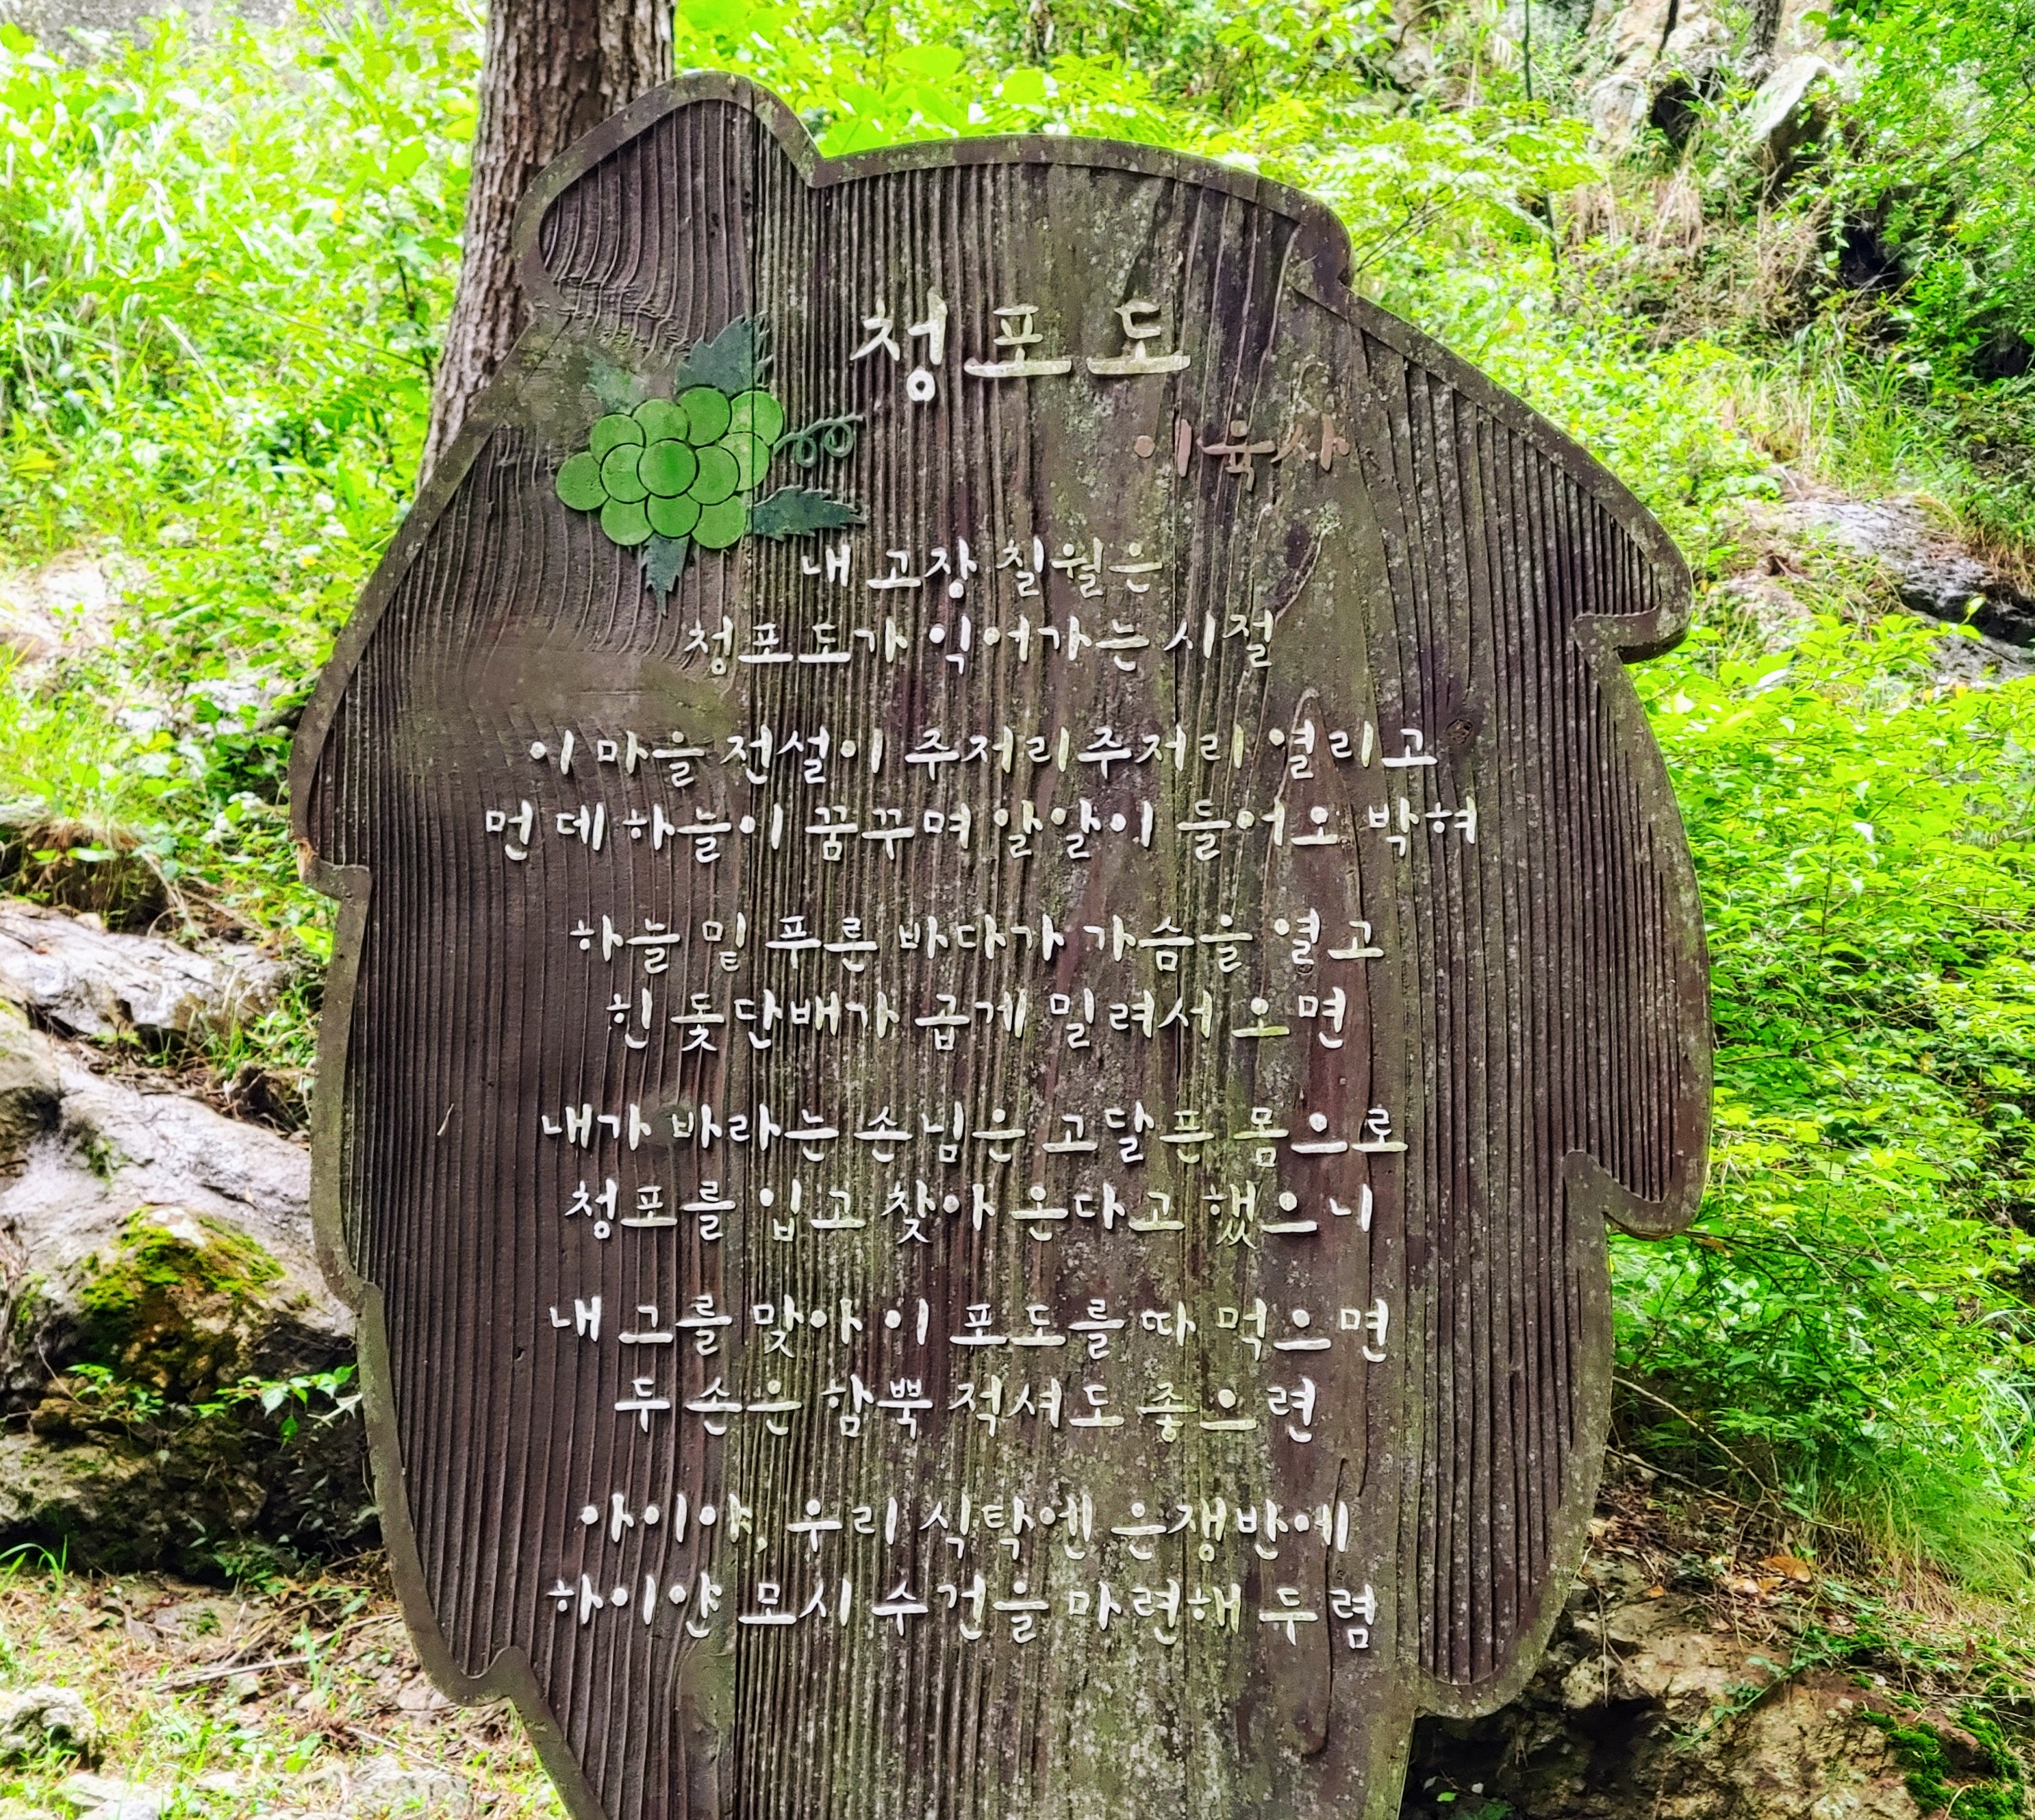 청포도
이육사
내 고장 칠월은
청포도가 익어가는 시절
이 마을 전설이 주저리주저리 열리고
먼 데 하늘이 꿈꾸며 알알이 들어와 박혀
하늘 밑 푸른 바다가 가슴을 열고
흰 돛단배가 곱게 밀려서 오면
내가 바라는 손님은 고달픈 몸으로
청포를 입고 찾아 온다고 했으니
내 그를 맞아 이 포도를 따 먹으면
두 손은 함뿍 적셔도 좋으련
아이야, 우리 식탁엔 은쟁반에
하이얀 모시 수건을 마련해 두렴